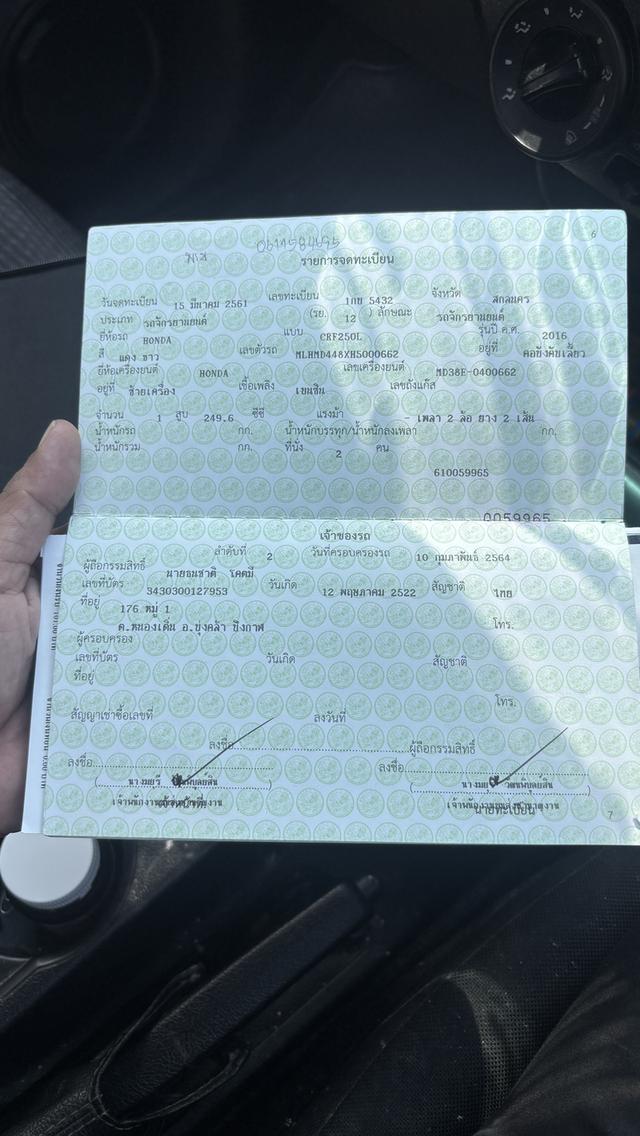 0611584695
6
รายการจดทะเบียน
วันจดทะเบียน 15 มีนาคม 2561 เลขทะเบียน 1กย 5432 จังหวัด สกลนคร
ประเภท รถจักรยานยนต์ (รย. 12 ) ลักษณะ รถจักรยานยนต์
ยี่ห้อรถ HONDA แบบ CRF250L รุ่นปี ค.ศ. 2016
สี แดง ขาว เลขตัวรถ MLHMD448XH5000662 อยู่ที่ คอบังคับเลี้ยว
ยี่ห้อเครื่องยนต์ HONDA เลขเครื่องยนต์ MD38E-0400662
อยู่ที่ ซ้ายเครื่อง เชื้อเพลิง เบนซิน เลขถังแก๊ส
จำนวน 1 สูบ 249.6 ซีซี แรงม้า - เพลา 2 ล้อ ยาง 2 เส้น
น้ำหนักรถ กก. น้ำหนักบรรทุก/น้ำหนักลงเพลา กก.
น้ำหนักรวม กก. ที่นั่ง 2 คน
610059965
0059965
เจ้าของรถ
ลำดับที่ 2 วันที่ครอบครองรถ 10 กุมภาพันธ์ 2564
ผู้ถือกรรมสิทธิ์ นายธนชาติ โคตมี
เลขที่บัตร 3430300127953 วันเกิด 12 พฤษภาคม 2522 สัญชาติ ไทย
ที่อยู่ 176 หมู่ 1 โทร.
ต.หนองเดิ่น อ.บุ่งคล้า บึงกาฬ
ผู้ครอบครอง
เลขที่บัตร วันเกิด สัญชาติ
ที่อยู่
โทร.
สัญญาเช่าซื้อเลขที่ ลงวันที่
ลงชื่อ ผู้ถือกรรมสิทธิ์
ลงชื่อ ลงชื่อ
นายทะเบียน
7